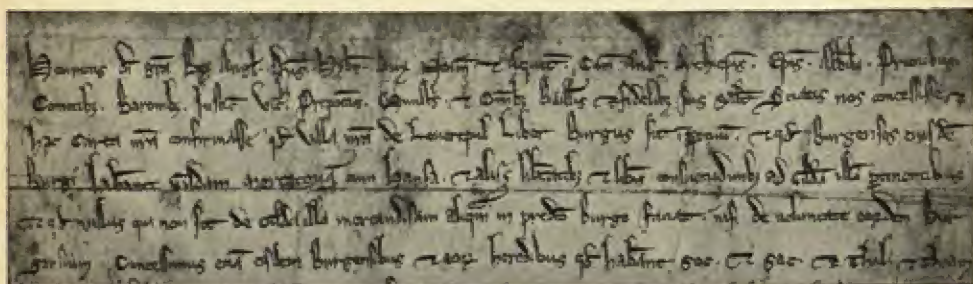 Henricus di gra Rex Angl. Dns Hybn. Dux Norm. et Aquit. Com And. Archiepis. Epis. Abbibs. Prioribus.
Comitibs. Baronibs. Justic. Vic. Prepositis. Ministris. et Omibs Ballivis et fidelibs suis saltm. Sciatis nos concessisse et
hac carta nra confirmasse qd villa nra de Leverepul Liber Burgus sit imppetuu. et qd Burgenses eiusdem
Burgi habeant Gildam mercatoriam cum Hansa. et aliis libtatibs et libis consuetudinibs ad Gildam illam ptinentibus
et qd nullus qui non sit de Gilda illa mercandisam aliqam in predco Burgo faciat nisi de voluntate eordem Bur
gensium. Concessimus eciam eisdem Burgensibus et eor heredibus qd habeant soc. et sac. et Thol. et Theam